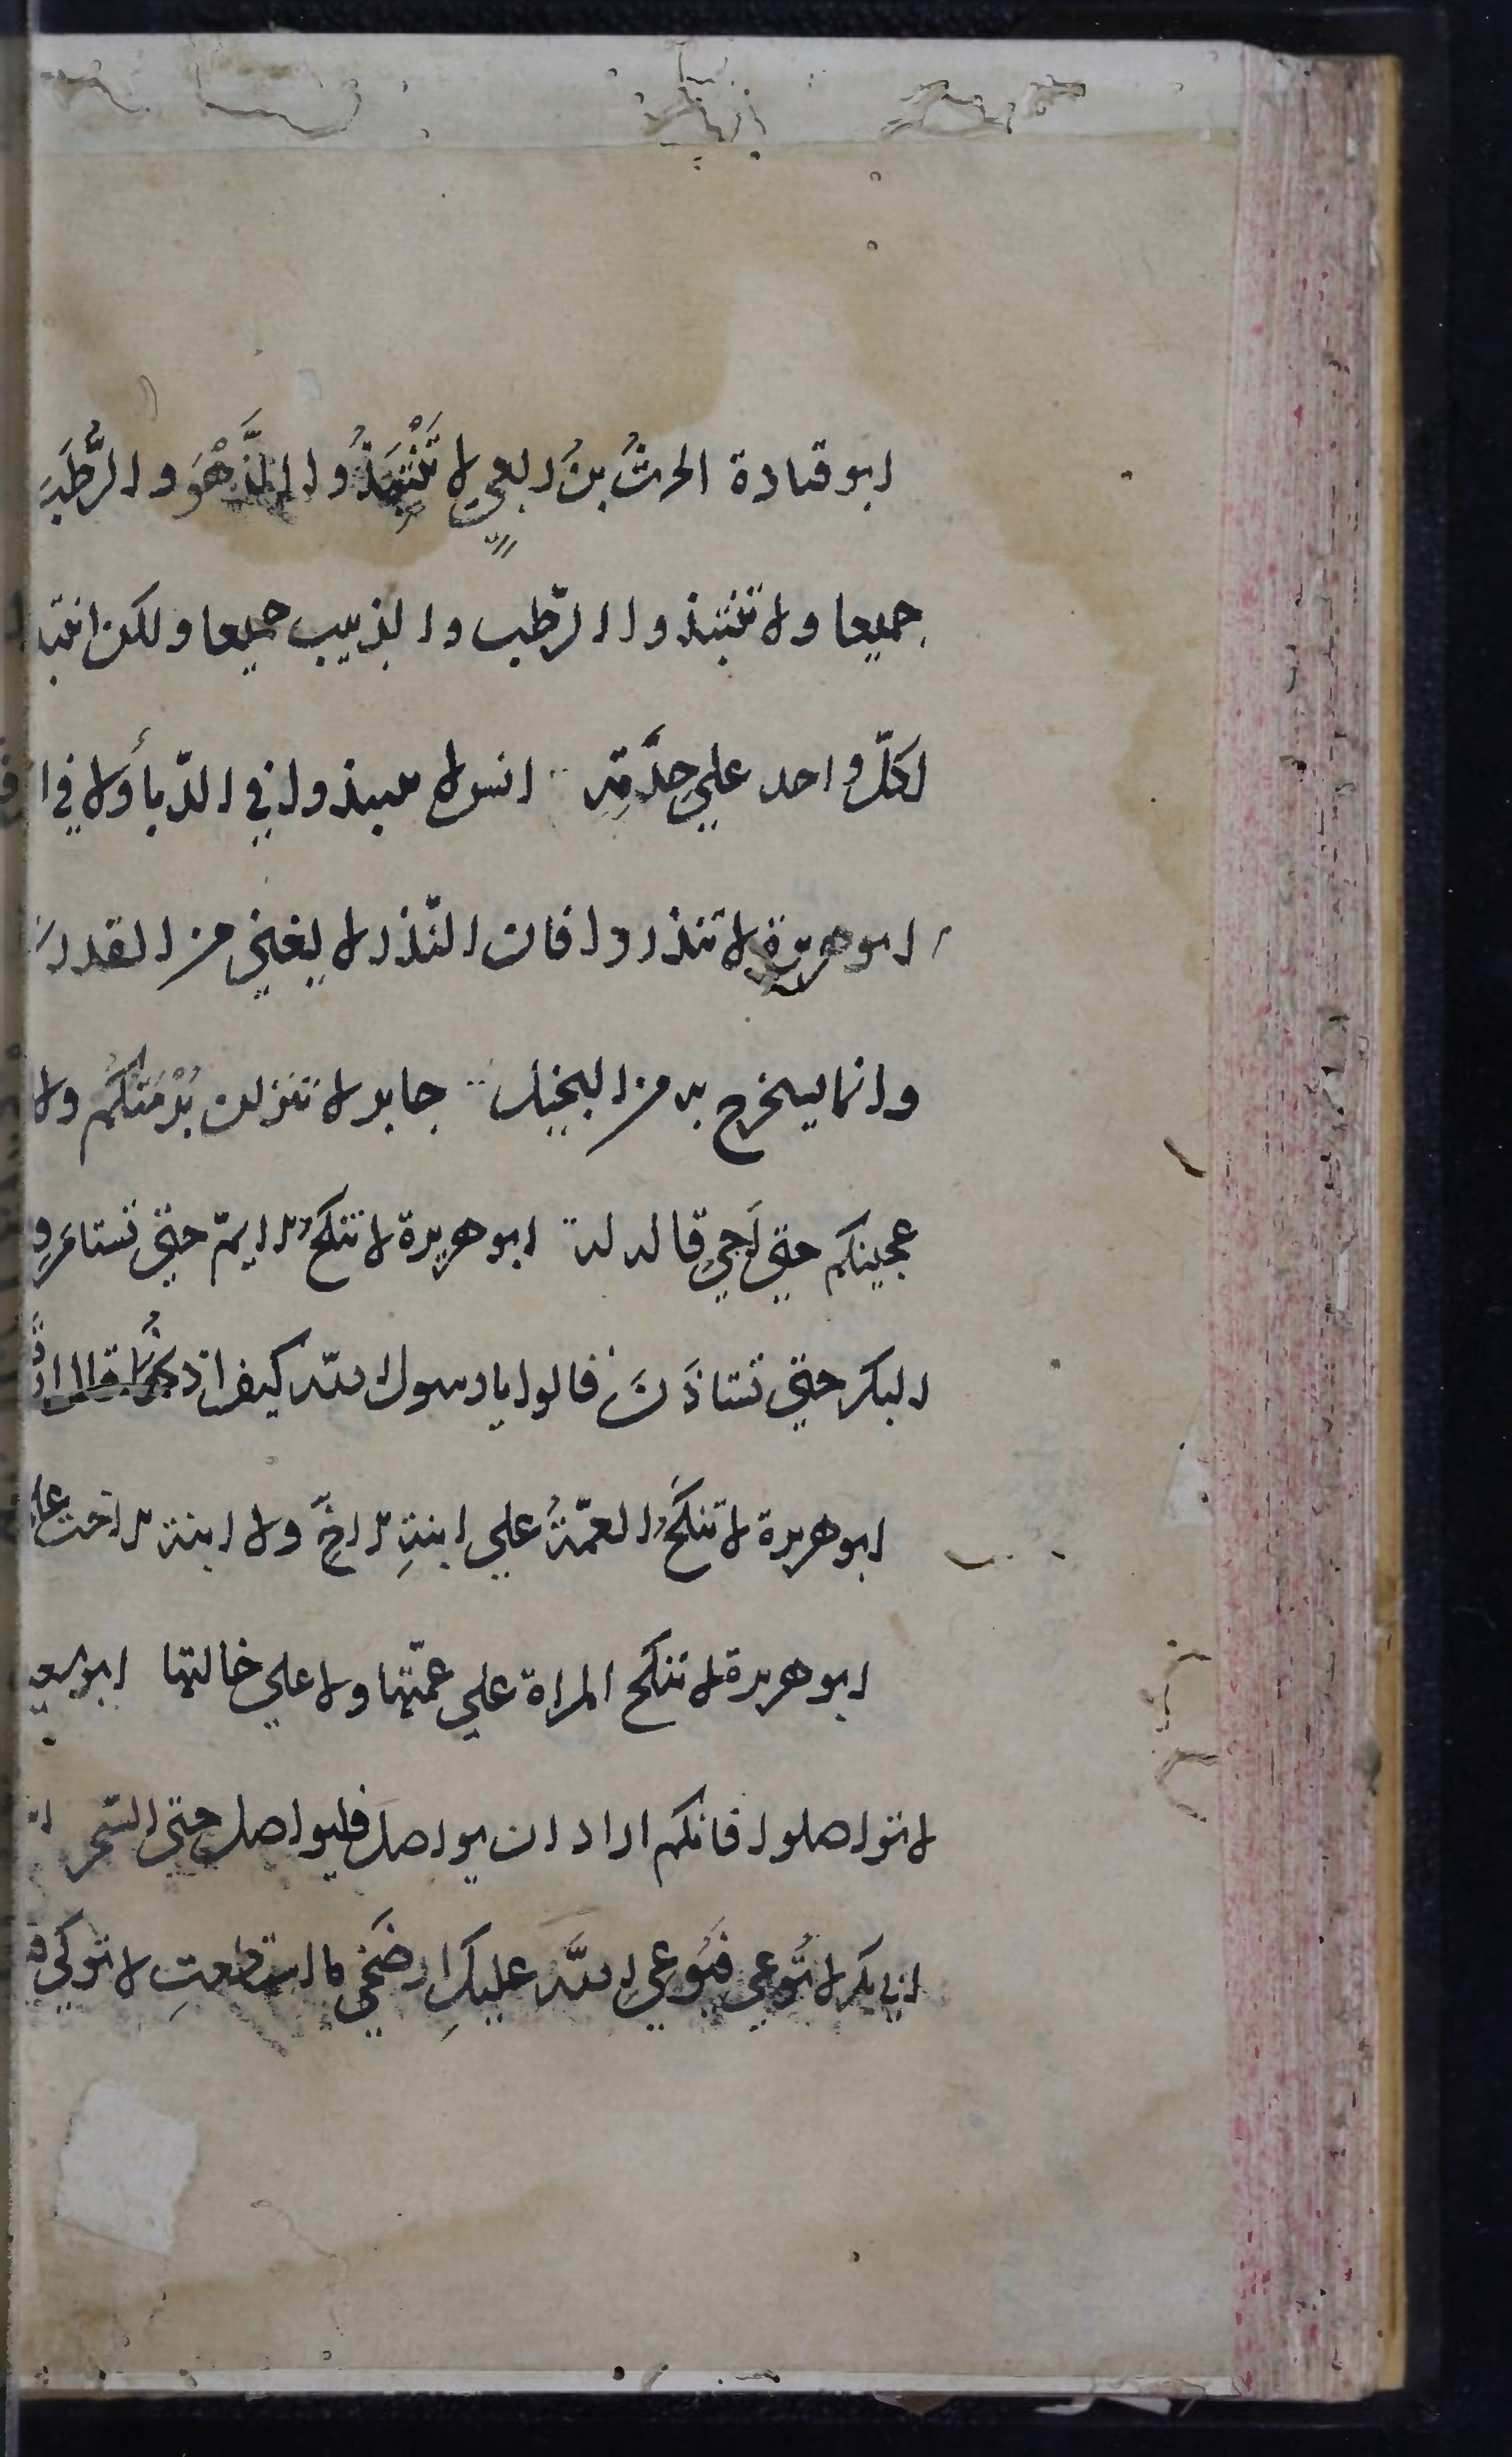 ابو قتادة الحرثُ بنُ ربعيٍ لا تَنْتَبِذُوا الزَّهْوَ والرُّطَبَ
جميعا ولا تنتبذوا الرّطب والزبيب جميعا ولكن انتبذ
لكلّ واحد علي حِدَتِه انس لا تنبذوا في الدّبأ ولا في ا
ابو هريرة لا تنذروا فان النّذر لا يغني من القدر
وانما يستخرج به من البخيل جابر لا تنزلن بُرْمَتَكُم ولا
عجينكم حتي اَجي قاله له ابو هريرة لا تنكح الايّم حتي تستامر و
البكر حتي تستاذَنَ قالوا يا رسول الله كيف اذنُها قال اذ
ابو هريرة لا تنكح العمّةُ علي ابنةِ الاخِ ولا ابنة الاخت علي
ابو هريرة لا تنكح المراة علي عمّتها ولا علي خالتها ابو سعيد
لا تواصلوا فانكم اراد ان يواصل فليواصل حتي السّحر
ابي بكر لا تُوعي فَيُوعي الله عليكِ ارضَخي ما استطعتِ لا توكي